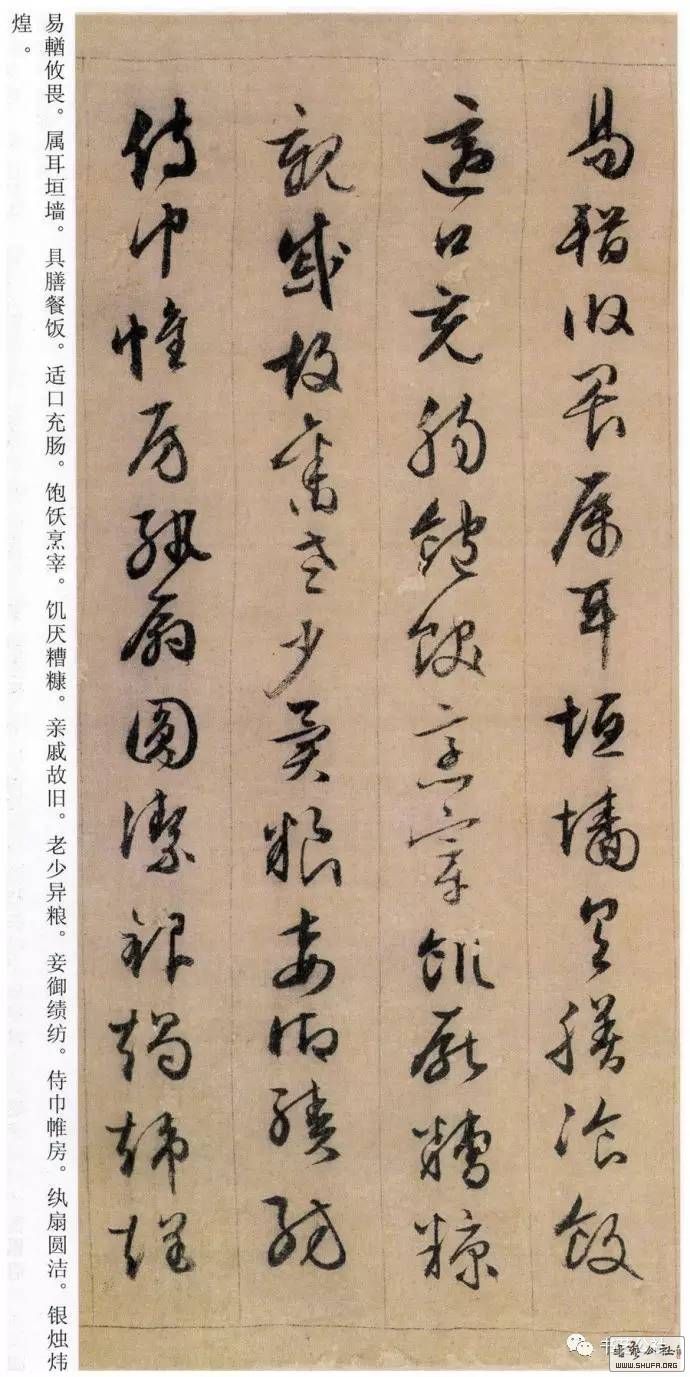 易輶攸畏属耳垣墙具膳飡飯
適口充腸飽飫烹宰飢厭糟糠
親戚故舊老少異粮妾御績紡
侍巾帷房紈扇圓潔銀燭煒煌
易輶攸畏。属耳垣墙。具膳餐饭。适口充肠。饱饫烹宰。饥厌糟糠。亲戚故旧。老少异粮。妾御绩纺。侍巾帷房。纨扇圆洁。银烛炜
煌。
书艺公社
WWW.SHUFA.ORG